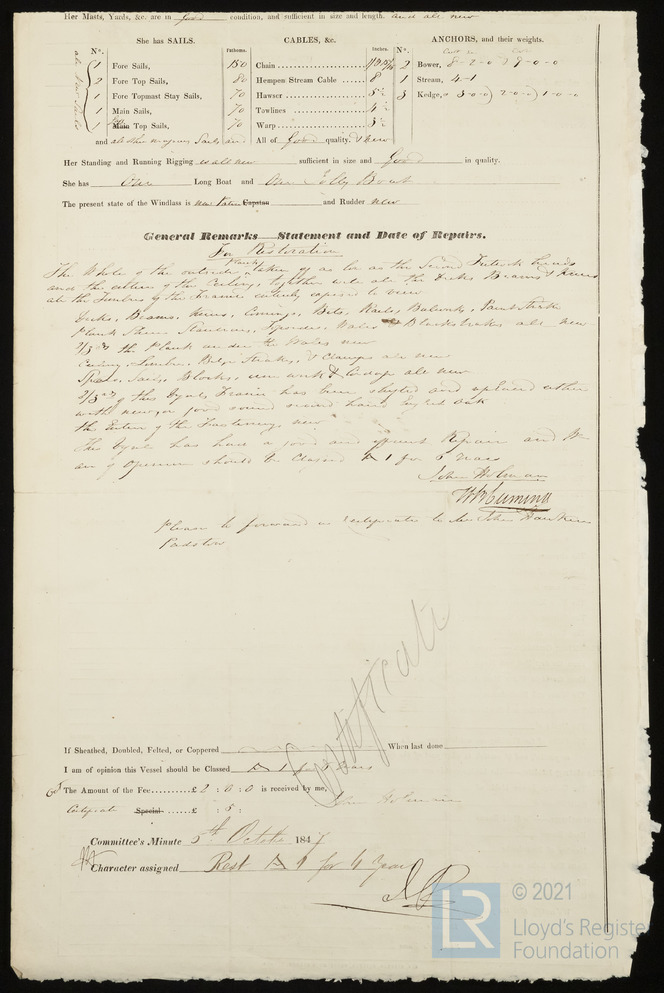 Her Masts, Yards, &c. are in good condition, and sufficient in size and length. and all new
She has SAILS.
CABLES, &c.
ANCHORS, and their weights.
N°.
Fathoms.
Inches.
N°.
1 Fore Sails,
2 Fore Top Sails,
1 Fore Topmast Stay Sails,
1 Main Sails,
1 Main Top Sails,
and all other Sails are
Chain 150
Hempen Stream Cable 80 8
Hawser 70 5½
Towlines 70 4½
Warp 70 3½
All of Good quality. & new
2 Bower, 8-2-0 9-0-0
1 Stream, 4-1
3 Kedge, 3-0-0 2-0-0 1-0-0
Her Standing and Running Rigging is all new sufficient in size and Good in quality.
She has One Long Boat and One Jolly Boat
The present state of the Windlass is new Patent Capstan and Rudder new
General Remarks Statement and Date of Repairs.
For Restoration
The Whole of the outside Plank taken off as low as the Second Futtock heads
and the whole of the Ceiling, together with all the Decks Beams & Knees
all the Timbers of the Frame entirely exposed to view
Decks, Beams, Knees, Comings, Bits, Rails, Bulwarks, Paint Strake
Plank Sheer, Stantions, Wales & Blackstrakes all new
2/3rds the Plank under the Wales new
Ceiling, Limber, Bilge Strakes, & Clamps all new
Spars, Sails, Blocks, iron work & Cordage all new
of this Vessels Frame has been shifted and replaced either
with new, or good sound second hand English Oak
the Entire of the Fastenings new
This Vessel has had a good and efficient Repair and We
are of Opinion should be Classed A 1 for 6 Years
John Holman
Please to forward Certificate to Mr John Hawken
Padstow
Certificate
If Sheathed, Doubled, Felted, or Coppered When last done
I am of opinion this Vessel should be Classed A 1 for Years
The Amount of the Fee......£2 : 0 : 0 is received by me,
Certificate Special......£ : 5 :
John Holman
Committee's Minute 5th October 1847
Character assigned Rest A 1 for 4 Years
LR
© 2021
Lloyd's Registe
Foundation